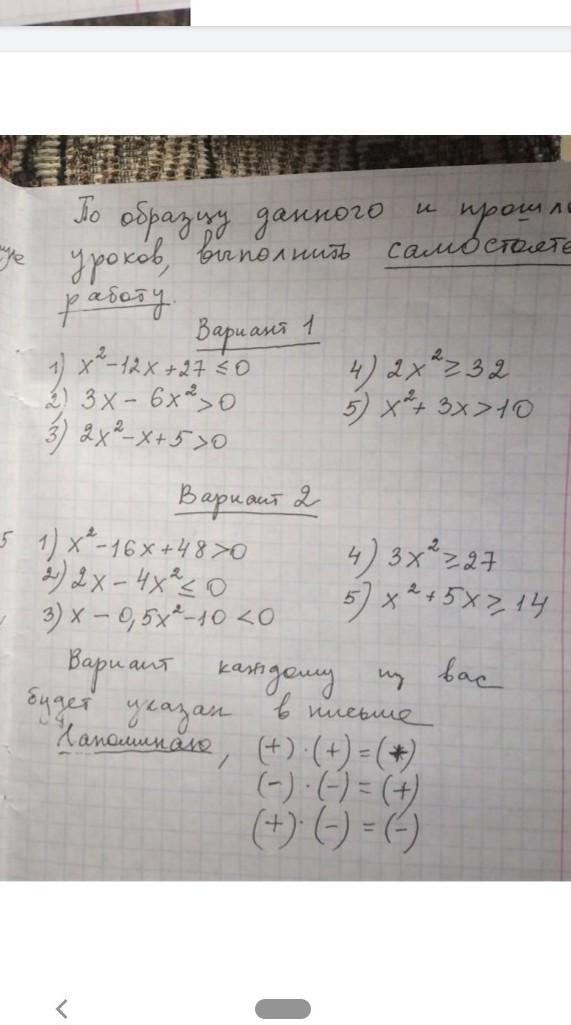 По образцу данного и
уроков, выполнить
работу.
Вариант 1
1) x²-12x+27≤0
2) 3x - 6x²>0
3) 2x²-x+5>0
4) 2x²≥32
5) x²+3x>10
Вариант 2
5
1) x²-16x+48>0
2) 2x - 4x²≤0
3) x - 0,5x²-10<0
4) 3x²≥27
5) x²+5x≥14
Вариант каждому из вас
будет указан в письме
Напоминаю, (+)·(+)=(+)
(-)·(-)=(+)
(+)·(-)=(-)